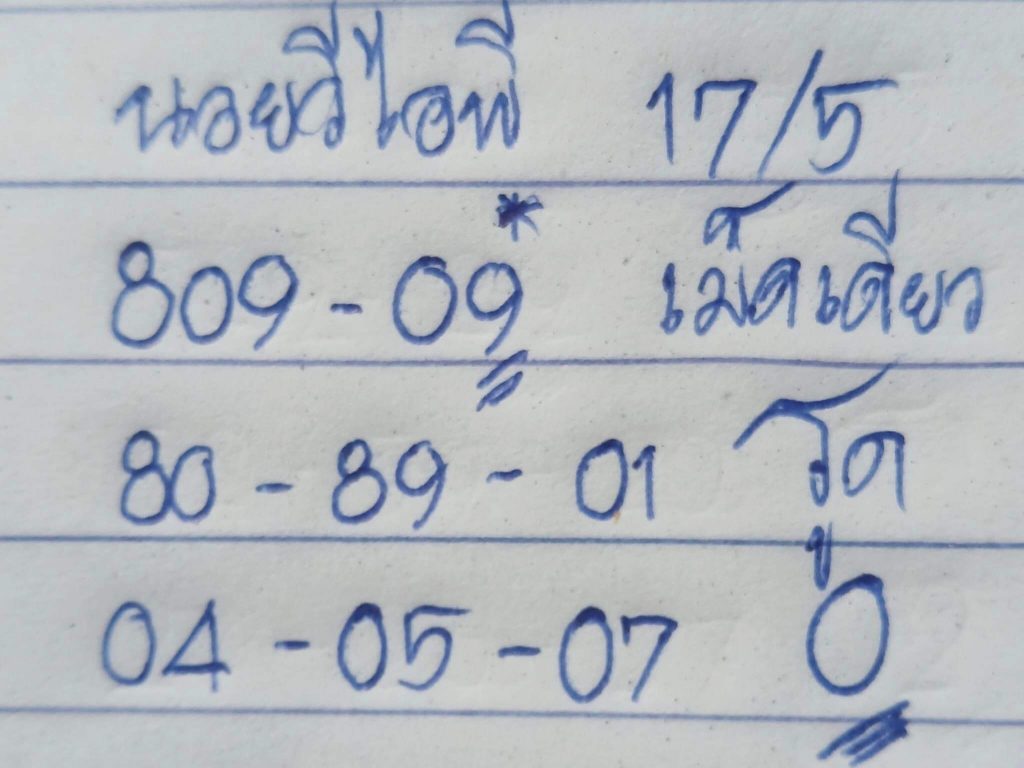 นอยวีไอพี 17/5
809 - 09* เม็ดเดียว
80 - 89 - 01 รูด
04 - 05 - 07 0